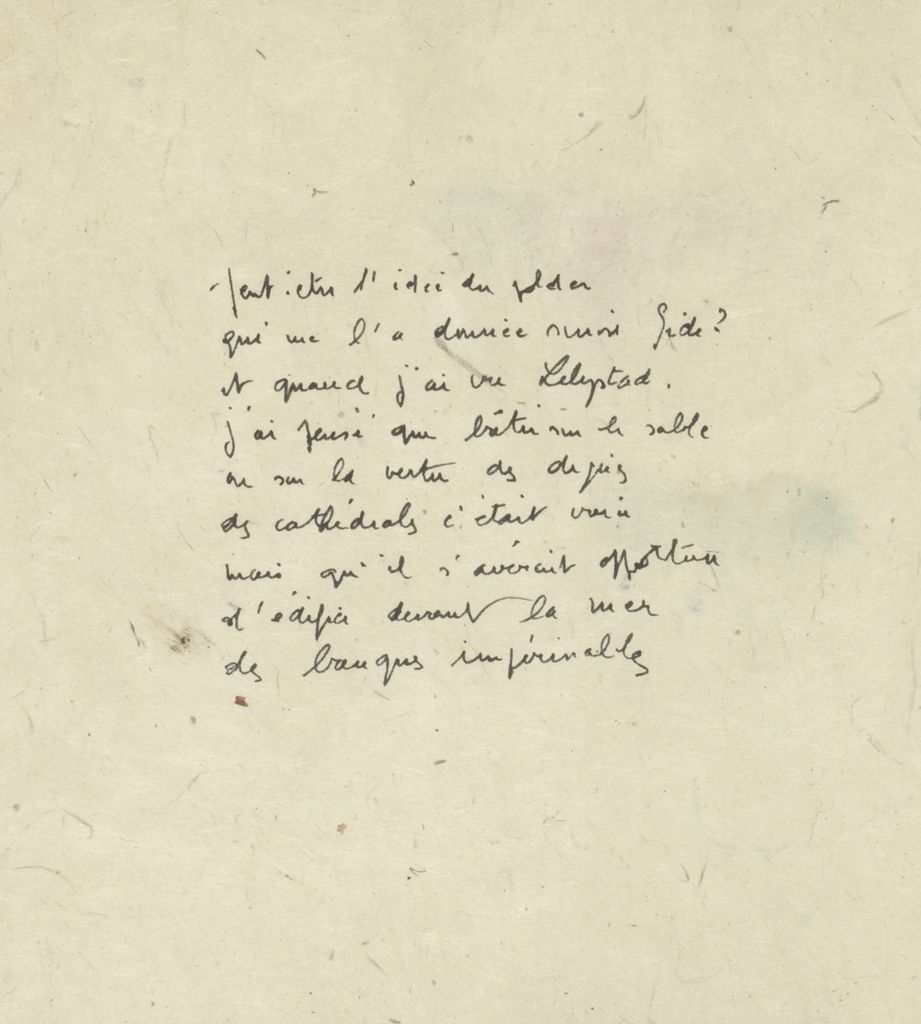 Peut-être l'idée du polder
qui me l'a donnée sinon Gide?
et quand j'ai vu Lelystad.
j'ai pensé que bâtir sur le sable
ou sur la vertu des
des cathédrales c'était vain
mais qu'il s'avérait opportun
d'édifier devant la mer
des banques impérissables